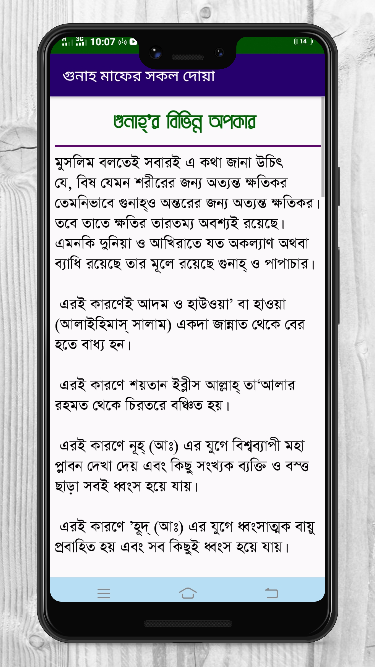 10:07
14
গুনাহ মাফের সকল দোয়া
গুনাহ্'র বিভিন্ন অপকার
মুসলিম বলতেই সবারই এ কথা জানা উচিৎ
যে, বিষ যেমন শরীরের জন্য অত্যন্ত ক্ষতিকর
তেমনিভাবে গুনাহ্ও অন্তরের জন্য অত্যন্ত ক্ষতিকর।
তবে তাতে ক্ষতির তারতম্য অবশ্যই রয়েছে।
এমনকি দুনিয়া ও আখিরাতে যত অকল্যাণ অথবা
ব্যাধি রয়েছে তার মূলে রয়েছে গুনাহ্ ও পাপাচার।
এরই কারণেই আদম ও হাউওয়া’ বা হাওয়া
(আলাইহিমাস্ সালাম) একদা জান্নাত থেকে বের
হতে বাধ্য হন।
এরই কারণে শয়তান ইব্লীস আল্লাহ্ তা‘আলার
রহমত থেকে চিরতরে বঞ্চিত হয়।
এরই কারণে নূহ্ (আঃ) এর যুগে বিশ্বব্যাপী মহা
প্লাবন দেখা দেয় এবং কিছু সংখ্যক ব্যক্তি ও বস্ত্ত
ছাড়া সবই ধ্বংস হয়ে যায়।
এরই কারণে ’হূদ্ (আঃ) এর যুগে ধ্বংসাত্মক বায়ু
প্রবাহিত হয় এবং সব কিছুই ধ্বংস হয়ে যায়।